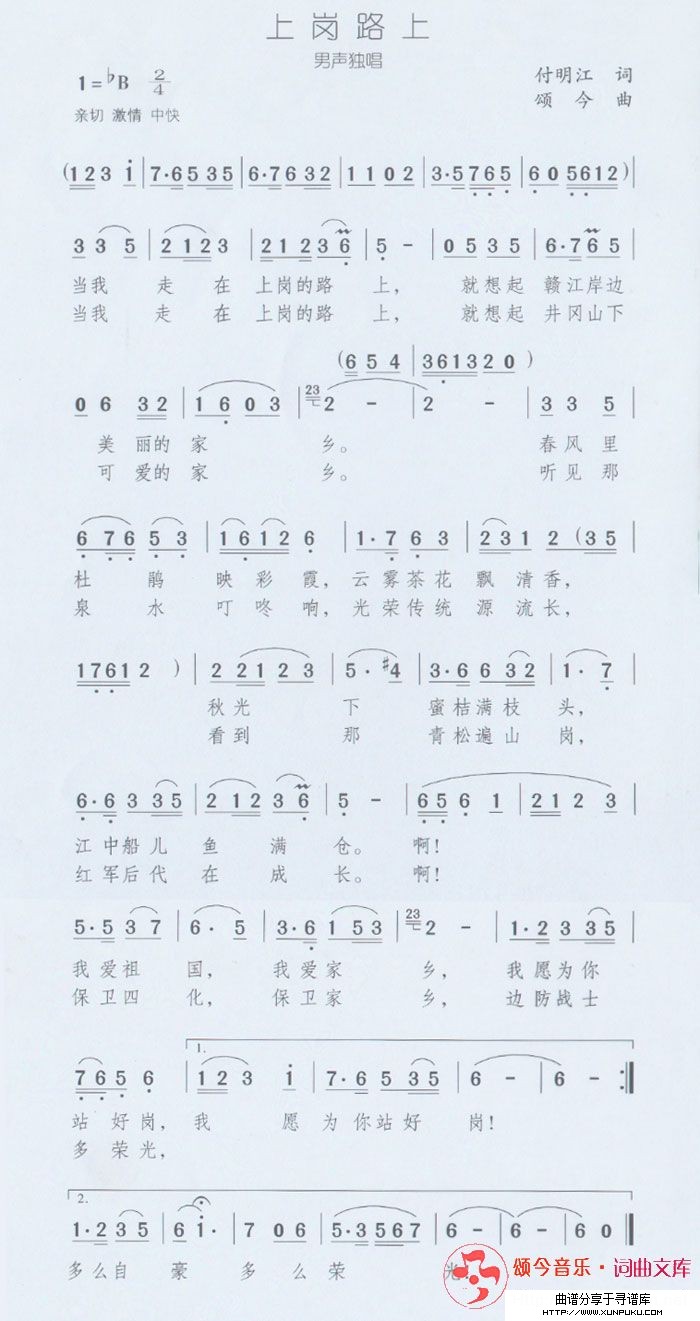 上岗路上
男声独唱
1=♭B 2/4
付明江 词
亲切 激情 中快
颂今 曲
(123 i|7·6535|6·7632|1102|3·5765|605612)|
335|2123|21236|5-|0535|6·765
当我 走 在 上岗的路 上， 就想起 赣江岸边
当我 走 在 上岗的路 上， 就想起 井冈山下
(654|361320)
0632|1603|23 2-|2-|335
美丽的家 乡。 春风里
可爱的家 乡。 听见那
67653|16126|1·763|2312(35
杜鹃 映彩霞，云雾茶花飘清香，
泉水 叮咚响，光荣传统源流长，
17612)|22123|5·#4|3·6632|1·7
秋光 下 蜜桔满枝头，
看到 那 青松遍山岗，
6·6335|21236|5-|6561|2123
江中船儿鱼满仓。啊！
红军后代在成长。啊！
5·537|6·5|3·6153|23 2-|1·2335
我爱祖国，我爱家乡，我愿为你
保卫四化，保卫家乡，边防战士
1.
7656|123 i|7·6535|6-|6-:||
站好岗，我 愿 为你站好 岗！
多荣光，
2.
1·235|6i·|706|5·3567|6-|6-|60||
多么自豪 多么荣 光！
颂今音乐·词曲文库
曲谱分享于寻谱库
HTTP://WWW.XUNPUKU.COM